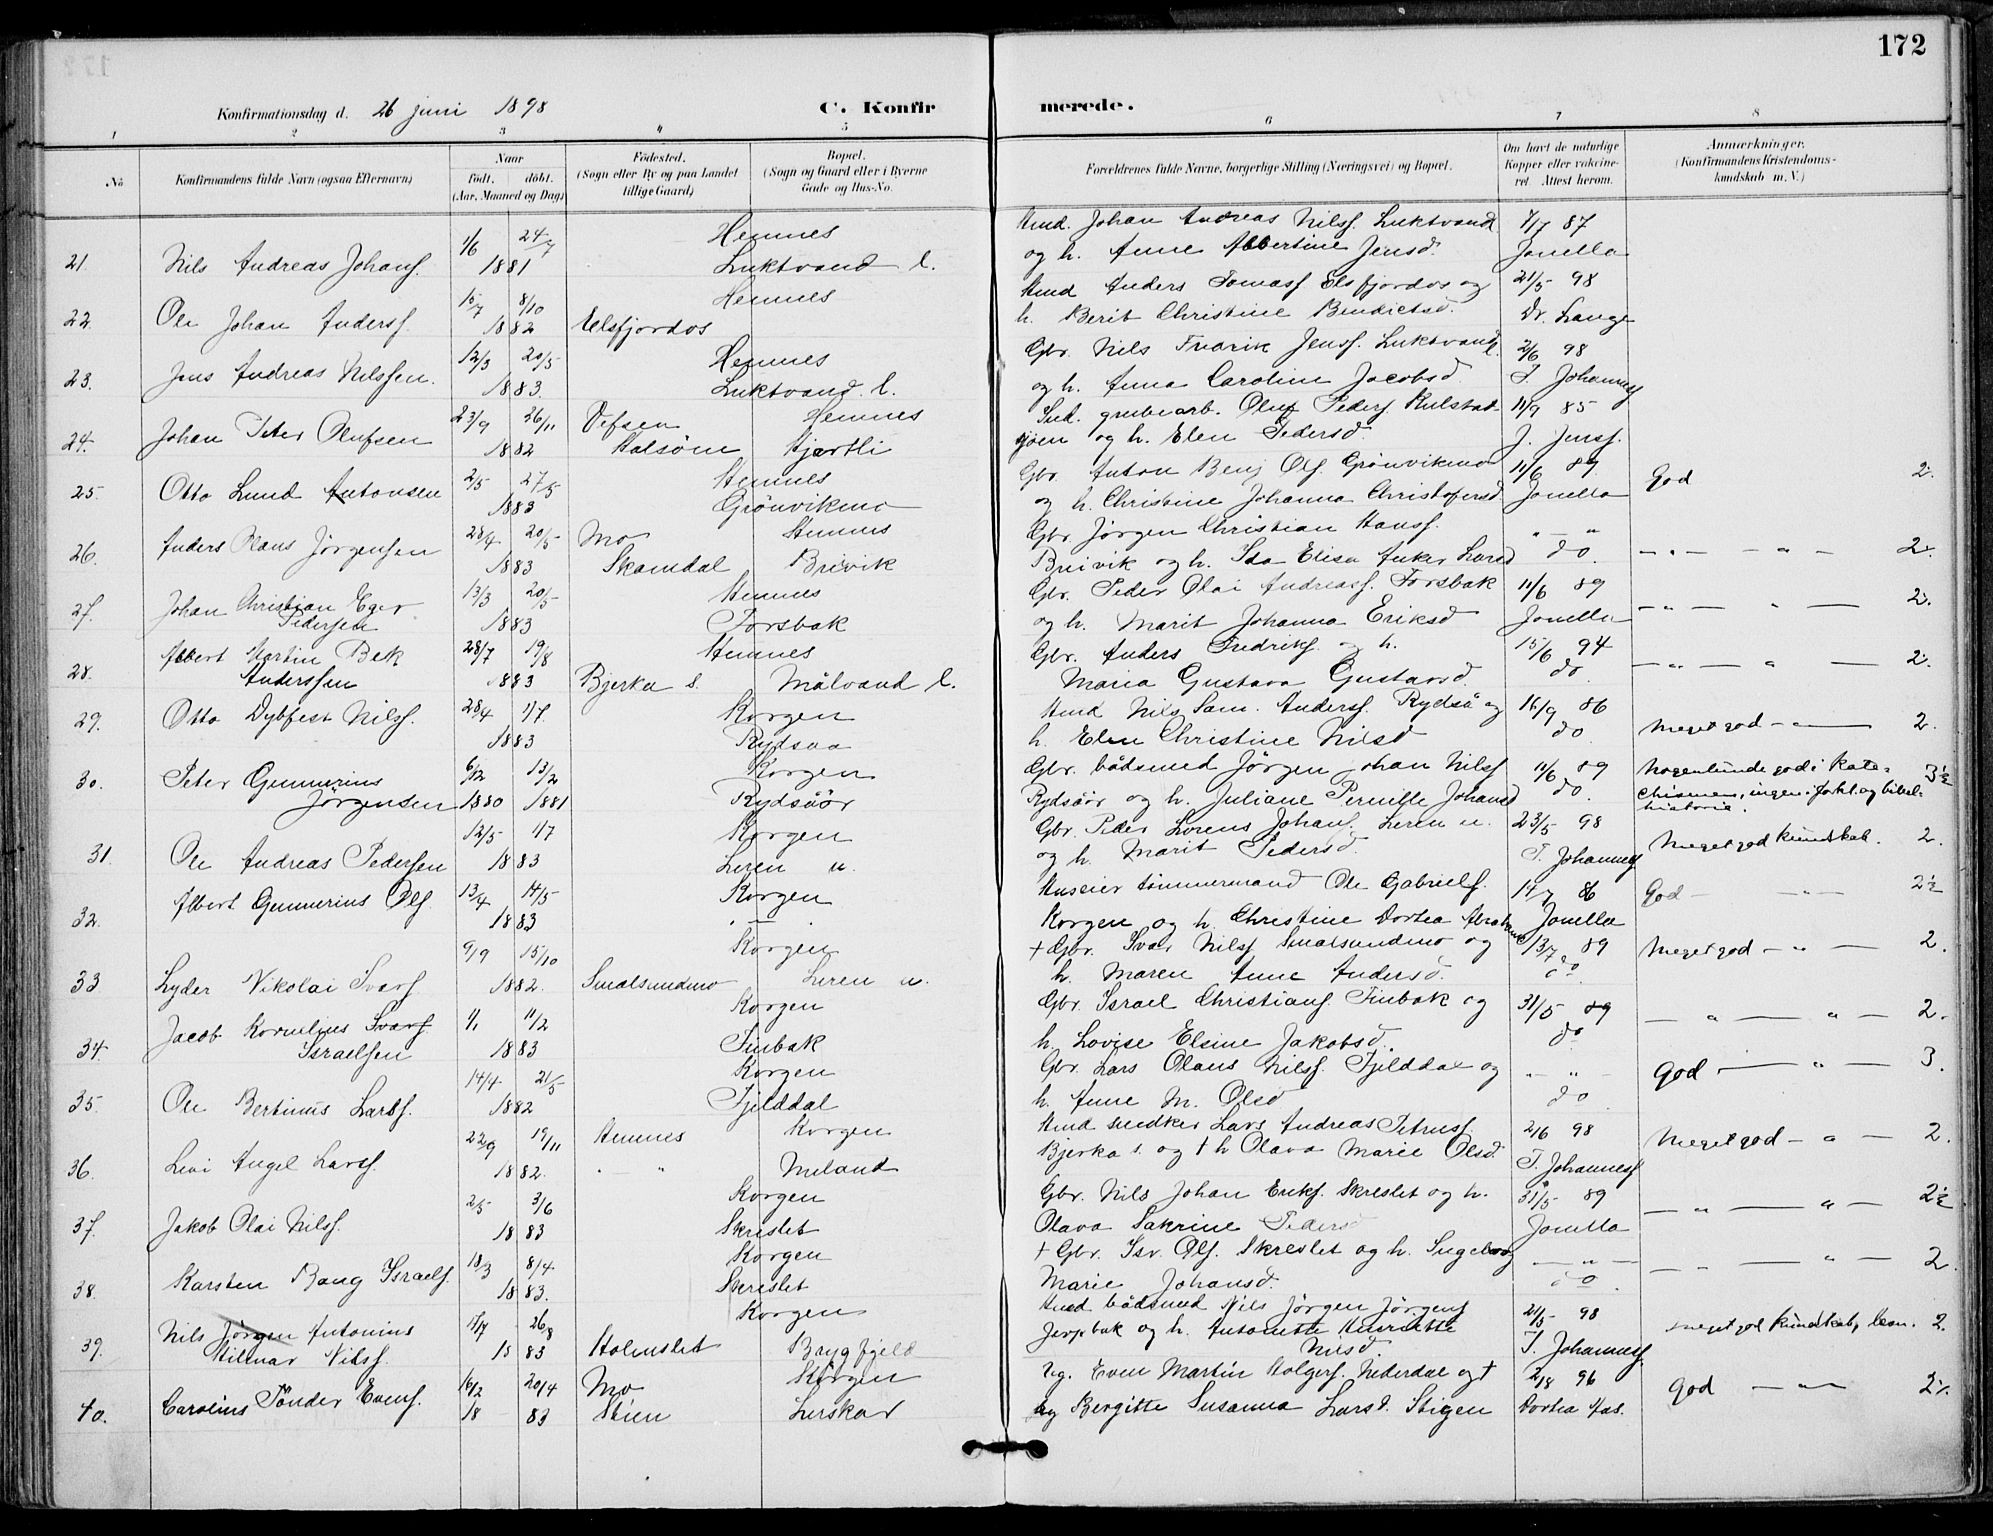 172
Konfirmationsdag d. 26 juni 1898
C. Konfir merede.
1 2 3 4 5 6 7 8
No
Konfirmandens fulde Navn (ogsaa Efternavn)
Naar
födt. döbt.
(Aar, Maaned og Dag)
Födested.
(Sogn eller By og paa Landet
tillige Gaard)
Bopæl.
(Sogn og Gaard eller i Byerne
Gade og Hus-No.
Forældrenes fulde Navne, borgerlige Stilling (Næringsvei) og Bopæl.
Om havt de naturlige
Kopper eller vakcine-
ret. Attest herom.
Anmærkninger.
(Konfirmandens Kristendoms-
kundskab m. V.)
1/6 24/7 Hemnes Hmd. Johan Andreas Nilsf. Luktvand 7/17 87
21. Nils Andreas Johansf. 1881 Luktvand l. og h. Anne Albertine Jensd. Jonella
15/7 8/10 Hemnes Hmd Anders Tomasf Elsfjordos og 21/5 98
22. Ole Johan Andersf. 1882 Elsfjordos h. Berit Christine Bendictsd. Dr. Lange
12/3 20/5 Hemnes Gbr. Nils Fredrik Jensf. Luktvand l. 2/6 98
23. Jens Andreas Nilssen. 1883. Luktvand. l. og h. Anna Caroline Jacobsd. T. Johannesf
23/9 26/11 Vefsen Hemnes Ind. grubearb. Oluf Pedersf. Kulstad- 11/9 85
24. Johan Peter Olufsen 1882 Halsöen Hjertli sjöen og h. Elen Pedersd. J. Jensf.
2/5 27/5 Hemnes Gbr. Anton Benj Olsf. Grönvikmo 11/6 89 God 2.
25. Otto Lund Antonsen 1883 Grönvikmo og h. Christine Johanna Christofersd. Jonella
28/4 20/5 Mo Hemnes Gbr. Jörgen Christian Hansf. " — "
26. Anders Olaus Jörgensen 1883 Skamdal Breivik Breivik og h. Ida Elisa Anker Larsd do — " — " — 2.
13/3 20/5 Hemnes Gbr. Peder Olai Andreasf. Forsbak 11/6 89
27. Johan Christian Eger Pedersen 1883 Forsbak og h. Marit Johanna Eriksd Jonella — " — " — 2.
28/7 19/8 Hemnes Gbr. Anders Fredriksf. og h. 15/6 94
28. Albert Martin Bek Anderssen 1883 Bjerka s. Målvand l. Maria Gustava Gustavsd. do — " — " — 2.
28/4 1/7. Korgen Hmd Nils Sam. Andersf. Rydså og 16/9 86
29. Otto Dybfest Nilsf. 1883 Rydsaa h. Elen Christine Nilsd do Meget god — " — 2.
6/12 13/2 Korgen Gbr. bådsmed Jörgen Johan Nilsf 11/6 89 Nogenlunde god i kate-
30. Peter Gunnerius Jörgensen 1880 1881 Rydsåör Rydsåör og h. Juliane Pernille Johansd do. chismen, ingen i forkl. og bibel- historie. 3½
12/5 1/7 Korgen Gbr. Peder Lorens Johansf. Leren n. 23/5 98
31. Ole Andreas Pedersen 1883 Leren n. og h. Marit Pedersd. T. Johannesf Meget god kundskab. 2.
13/4 14/5 Korgen Huseier tömmermand Ole Gabrielsf. 14/7 86 God — " — 2½
32. Albert Gunnerius Olsf. 1883 . — . Korgen og h. Christine Dortea Abrahamsd Jonella
9/9 15/10 Korgen + Gbr. Ivar Nilsf Smalsundmo og 13/7 89 Meget god — " — 2.
33 Lyder Nikolai Ivarsf 1882. Smalsundmo Leren n. h. Maren Anne Andersd. do
1/1 11/2 Korgen Gbr. Israel Christiansf. Finbak og 31/5 89
34. Jacob Kornelius Ivarsf Israelsen 1883 Finbak h. Lovise Elsine Jakobsd. do — " — " — 2.
14/4 21/5 Korgen Gbr. Lars Olaus Nilsf. Fjelddal og " — " God — " — 3.
35. Ole Bertinus Larsf. 1882 Fjelddal h. Anne M. Olsd do
22/9 19/11 Hemnes Korgen Hmd snedker Lars Andreas Petrusf. 2/6 98
36. Levi Angel Larsf. 1882. . " Meland Bjerka s. og + h Olava Marie Olsd. T. Johannesf Meget god — " — 2.
2/5 3/6 Korgen Gbr. Nils Johan Eriksf. Skreslet og h. 31/5 89
37. Jakob Olai Nilsf. 1883 Skreslet Olava Sakrine Pedersd Jonella — " — " — 2½
18/3 8/4 Korgen + Gbr. Isr. Olsf. Skreslet og h. Ingeborg — " —
38. Karsten Bang Israelsf. 1883. Skreslet Marie Johansd. do — " — " — 2
4/7 26/8 Korgen Hmd bådsmed Nils Jörgen Jörgensf 21/5 98
39. Nils Jörgen Antonius Hilmar Nilsf. 1883 Holmslet Brygfjeld Jerpbak og h. Antonette Henriette Nilsd. T. Johannesf. Meget god kundskab, 2
16/2 20/4 Mo Korgen Even Martin Holgersf. Nederdal og + 2/18 96
40. Carolius Tönder Evensf. 1883 Stien Lerskar Bergitte Susanna Larsd. Stigen Dortea Aas. God — " — 2½